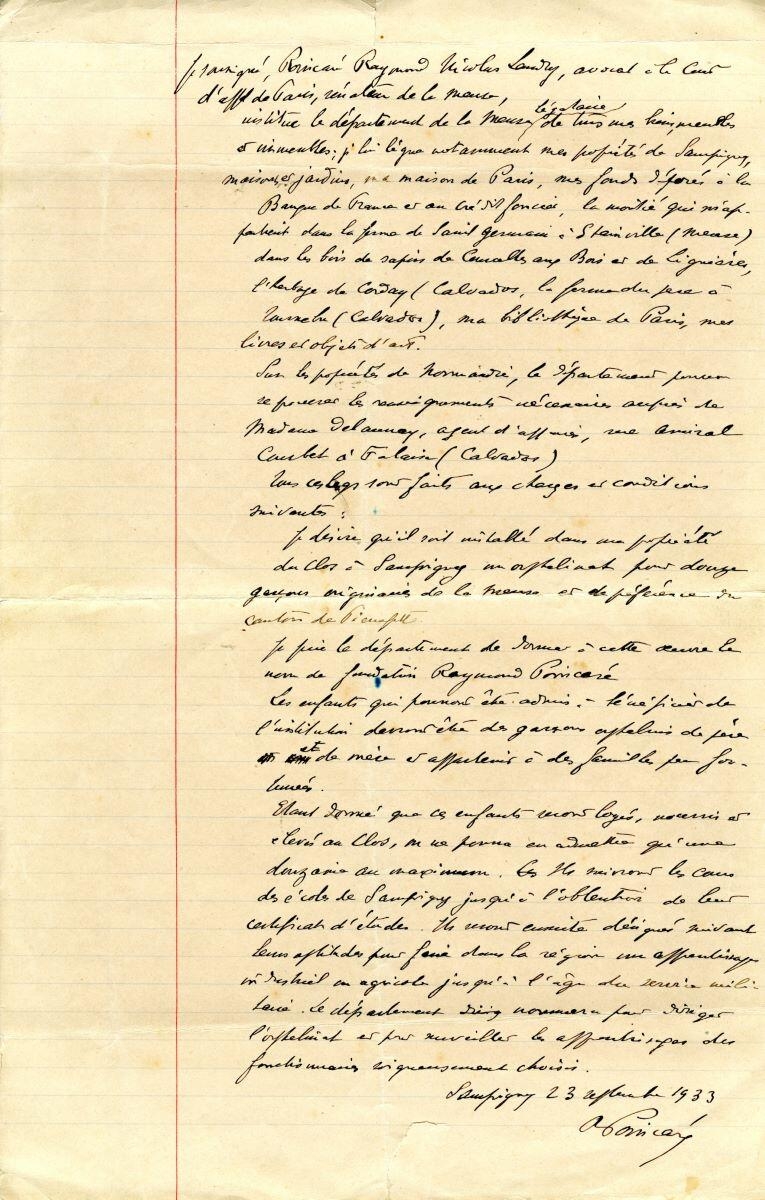 Je soussigné, Poincaré Raymond Nicolas Landry, avocat à la Cour
d'appel de Paris, sénateur de la Meuse,
institue le département de la Meuse légataire de tous mes biens, meubles
et immeubles; je lui lègue notamment mes propriétés de Sampigny,
maisons et jardins, ma maison de Paris, mes fonds déposés à la
Banque de France et au crédit foncier, la moitié qui m'ap-
partient dans la ferme de Saint Germain à Stainville (Meuse)
dans les bois de sapins de Courcelles aux Bois et de Lignières,
l'herbage de Corday (Calvados, la ferme du parc à
Tournebu (Calvados), ma bibliothèque de Paris, mes
livres et objets d'art.
Sur les propriétés de Normandie, le département pourra
se procurer les renseignements nécessaires auprès de
Madame Delaunay, agent d'affaires, rue Amiral
Courbet à Falaise (Calvados)
Tous ces legs sont faits aux charges et conditions
suivantes :
Je désire qu'il soit installé dans ma propriété
du Clos à Sampigny un orphelinat pour douze
garçons originaires de la Meuse et de préférence du
canton de Pierrefitte
Je prie le département de donner à cette œuvre le
nom de fondation Raymond Poincaré
Les enfants qui pourront être admis à bénéficier de
l'institution devront être des garçons orphelins de père
et de mère et appartenir à des familles peu for-
tunées.
Etant donné que ces enfants seront logés, nourris et
élevés au Clos, on ne pourra en admettre qu'une
douzaine au maximum. Ils suivront les cours
des écoles de Sampigny jusqu'à l'obtention de leur
certificat d'études. Ils seront ensuite désignés suivant
leurs aptitudes pour faire dans la région un apprentissage
industriel ou agricole jusqu'à l'âge du service mili-
taire. Le département nommera pour diriger
l'orphelinat et pour surveiller les apprentissages des
fonctionnaires soigneusement choisis.
Sampigny 23 septembre 1933
R Poincaré